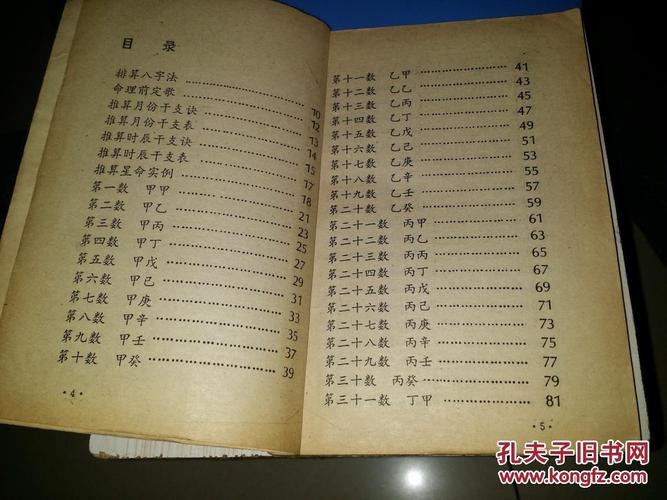 目 录
排算八字法 …… 10
命理前定歌 …… 12
推算月份干支诀 …… 13
推算月份干支表 …… 14
推算时辰干支诀 …… 15
推算时辰干支表 …… 17
推算星命实例 …… 18
第一数 甲甲 …… 21
第二数 甲乙 …… 23
第三数 甲丙 …… 25
第四数 甲丁 …… 27
第五数 甲戊 …… 29
第六数 甲己 …… 31
第七数 甲庚 …… 33
第八数 甲辛 …… 35
第九数 甲壬 …… 37
第十数 甲癸 …… 39
·4·
第十一数 乙甲 …… 41
第十二数 乙乙 …… 43
第十三数 乙丙 …… 45
第十四数 乙丁 …… 47
第十五数 乙戊 …… 49
第十六数 乙己 …… 51
第十七数 乙庚 …… 53
第十八数 乙辛 …… 55
第十九数 乙壬 …… 57
第二十数 乙癸 …… 59
第二十一数 丙甲 …… 61
第二十二数 丙乙 …… 63
第二十三数 丙丙 …… 65
第二十四数 丙丁 …… 67
第二十五数 丙戊 …… 69
第二十六数 丙己 …… 71
第二十七数 丙庚 …… 73
第二十八数 丙辛 …… 75
第二十九数 丙壬 …… 77
第三十数 丙癸 …… 79
第三十一数 丁甲 …… 81
·5·
孔夫子旧书网
www.kongfz.com